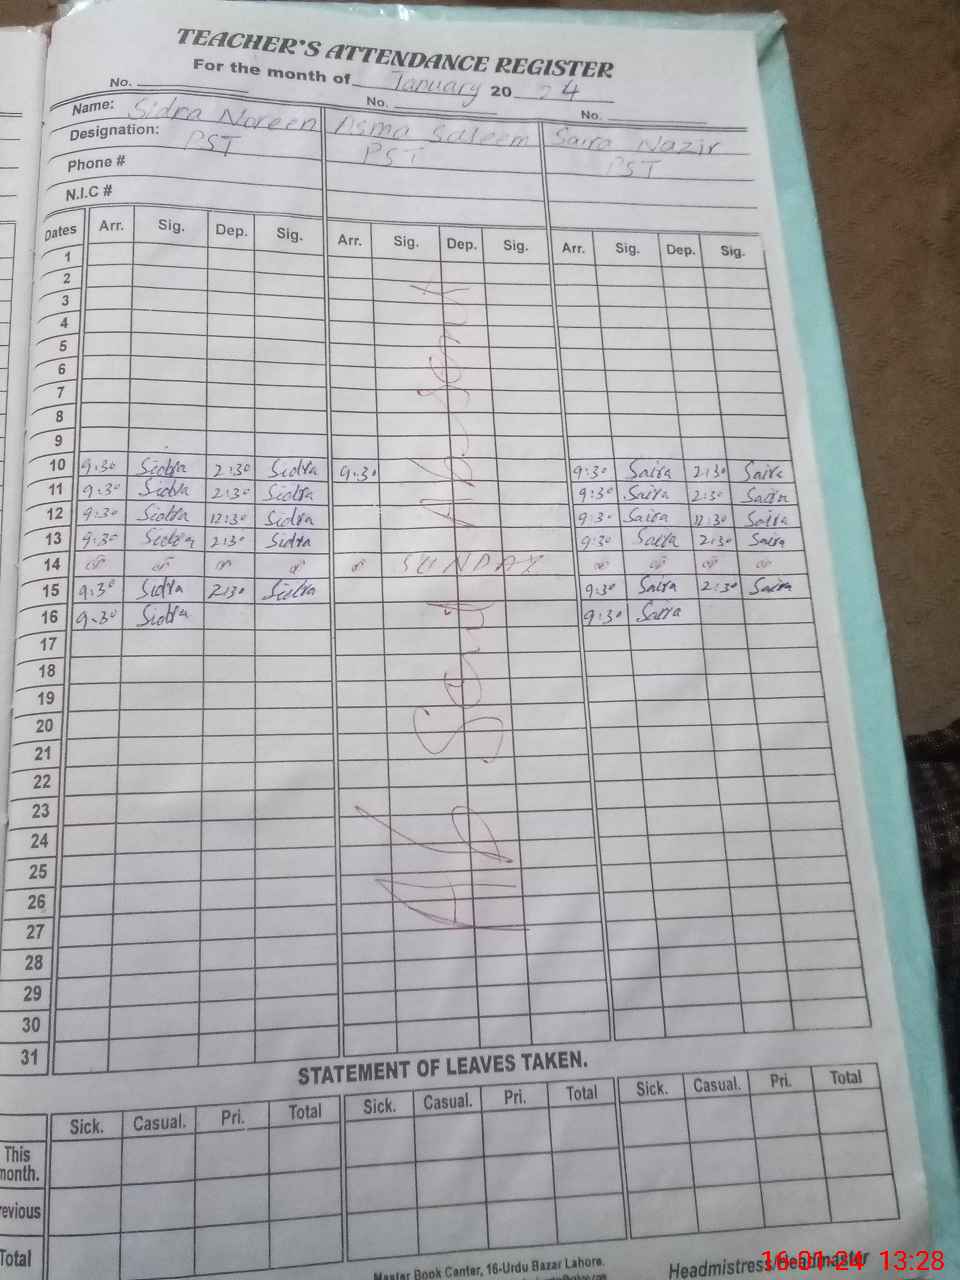 TEACHER'S ATTENDANCE REGISTER
For the month of January 20 24
No. No. No.
Name: Sidra Noreen Asma Saleem Saira Nazir
Designation: PST PST PST
Phone #
N.I.C #
Dates Arr. Sig. Dep. Sig. Arr. Sig. Dep. Sig. Arr. Sig. Dep. Sig.
1
2
3
4
5
6
7
8
9
10 9:30 Sidra 2:30 Sidra 9:30 9:30 Saira 2:30 Saira
11 9:30 Sidra 2:30 Sidra 9:30 Saira 2:30 Saira
12 9:30 Sidra 12:30 Sidra 9:30 Saira 12:30 Saira
13 9:30 Sidra 2:30 Sidra 9:30 Saira 2:30 Saira
14 SUNDAY
15 9:30 Sidra 2:30 Sidra 9:30 Saira 2:30 Saira
16 9:30 Sidra 9:30 Saira
17
18
19
20
21
22
23
24
25
26
27
28
29
30
31
Ab Sent Ab sent
STATEMENT OF LEAVES TAKEN.
Sick. Casual. Pri. Total Sick. Casual. Pri. Total Sick. Casual. Pri. Total
This
month.
revious
Total
Master Book Center, 16-Urdu Bazar Lahore.
Headmistress/Headmaster
16-01-24 13:28